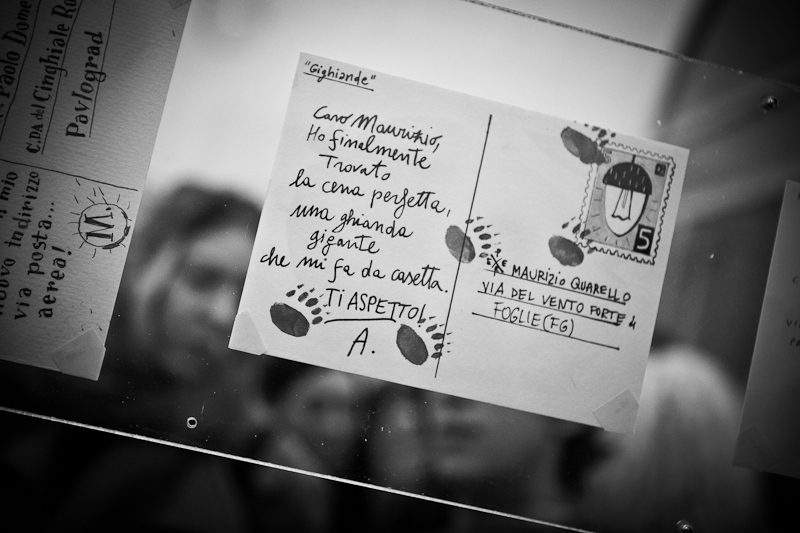 Paolo Dome
C.DA del Cinghiale Ro
Pavlograd
mio
nuovo indirizzo
via posta...
aerea!
M.
"Gighiande"
Caro Maurizio,
Ho finalmente
Trovato
la cena perfetta,
una ghianda
gigante
che mi fa da casetta.
TI ASPETTO!
A.
5
MAURIZIO QUARELLO
VIA DEL VENTO FORTE 4
FOGLIE (FG)